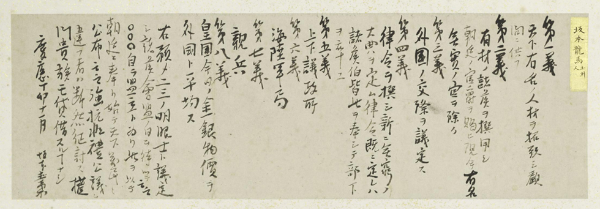 坂本龍馬
第一義
天下有名ノ人材ヲ招致シ顧
問ニ供フ
第二義
有材ノ諸侯ヲ撰用シ
朝廷ノ官爵ヲ賜ヒ現今有名
無実ノ官ヲ除ク
第三義
外国ノ交際ヲ議定ス
第四義
律令ヲ撰シ新ニ無窮ノ
大典ヲ定ム律令既ニ定レハ
諸侯伯皆此ヲ奉シテ部下
ヲ率ユ
第五義
上下議政所
第六義
海陸軍局
第七義
親兵
第八義
皇国今日ノ金銀物価ヲ
外国ト平均ス
右預メ二三ノ明眼士ト議定
シ諸侯会盟ノ日ヲ待ツテ云云
○○○自ラ盟主ト為リ此ヲ以テ
朝廷ニ奉リ始テ天下萬民ニ
公布云云強抗非禮公議ニ
違フ者ハ断然征討ス権
門貴族モ貸借スルコトナシ
慶應丁卯十一月 坂本直柔